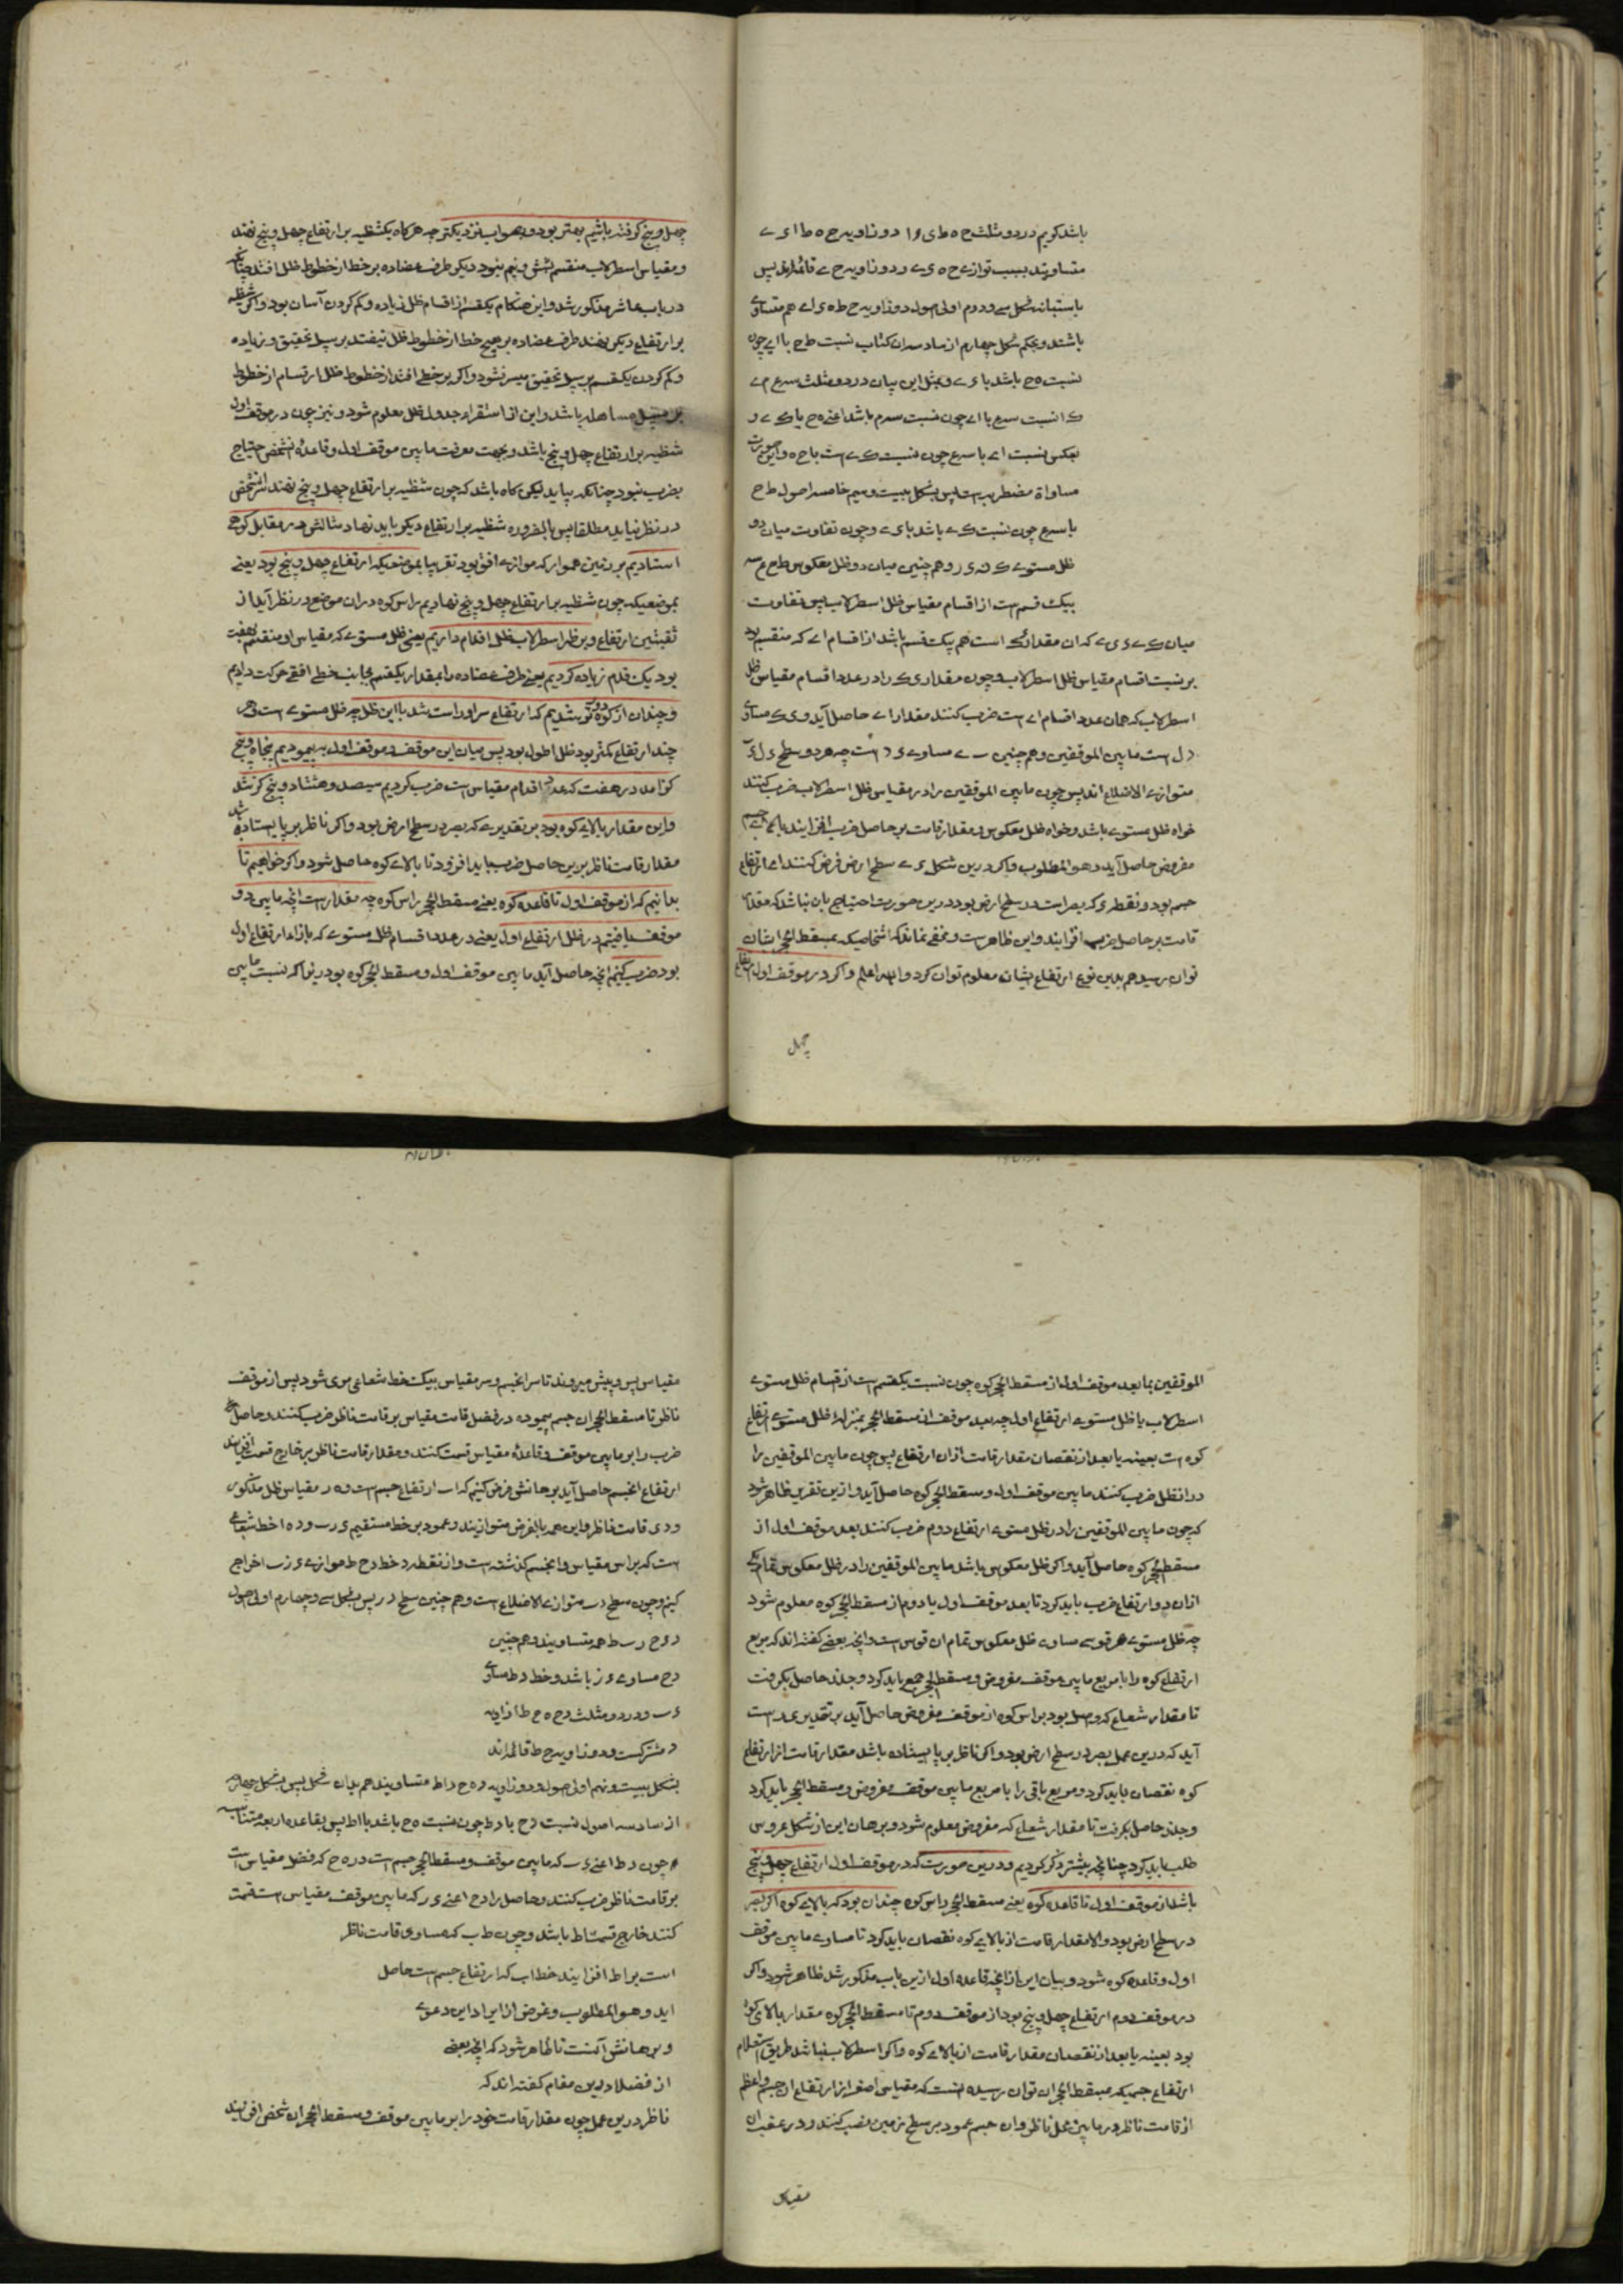 باشد کویم در دو مثلث ح ه ط ی ا دو زاویه ح ه ط ا ی ے
متساویند بسبب توازے ح ه ی ے و دو زاویه ح ے قائمه اند پس
باستبانه شکل سے و دوم اولی اصول دو زاویه ح ط ه ی ا ے هم متساوے
باشند و بحکم شکل چهارم از سادسه ان کتاب نسبت ط ح با ا ے چون
نسبت ه ح باشد با ی ے و بمثل این بیان در دو مثلث س ع م ے
ک ا نسبت س ع با ا ے چون نسبت س م باشد اعنے ه ح با ک ے و
بعکس نسبت ا ے با س ع چون نسبت ک ے است با ح ه و این صورت
مساواة مضطربه است پس بشکل بیست و سیم خامسه اصول ط ح
با س ع چون نسبت ک ے باشد با ی ے و چون تفاوت میان دو
ظل مستوے و هم چنین میان دو ظل معکوس ط ح ع س
بیک قسم است از اقسام مقیاس ظل اسطرلاب پس تفاوت
میان ک ے ی ے که ان مقدار ی ک است هم بیک قسم باشد از اقسام ا ے که منقسم بود
بر نسبت اقسام مقیاس ظل اسطرلاب و چون مقدار ی ک را در عدد اقسام مقیاس ظل
اسطرلاب که همان عدد اقسام ا ے است ضرب کنند مقدار ا ے حاصل آید و ی ک مساوی
د ل است ما بین الموقفین و هم چنین ب ے مساوے ی د است چه هر دو سطح
متوازے الاضلاع اند پس چون ما بین الموقفین را در مقیاس ظل اسطرلاب ضرب کنند
خواه ظل مستوے باشد و خواه ظل معکوس و مقدار قامت بر حاصل ضرب افزایند بالاے جسم
مفروض حاصل آید و هو المطلوب و اکر درین شکل ی ے سطح ارض فرض کنند ا ے ارتفاع
جسم بود و نقطه ی که بصر است در سطح ارض بود و درین صورت احتیاج بان نباشد که مقدار
قامت بر حاصل ضرب افزایند و این ظاهر است و مخفی نماند که اشخاصیکه بمسقط الحجر ایشان
توان رسید هم بدین نوع ارتفاع ایشان معلوم توان کرد و الله اعلم و اکر در موقف اول ارتفاع
چهل
چهل و پنج کرفته باشیم بهتر بود و بصواب نزدیکتر چه هرکاه یک شظیه بر ارتفاع چهل و پنج نهند
و مقیاس اسطرلاب منقسم بشش و نیم نبود دیکر طرف عضاده بر خط از خطوط ظل افتد چنانکه
در باب عاشر مذکور شد و این هنکام یک قسم از اقسام ظل زیاده و کم کردن آسان بود و اکر شظیه
بر ارتفاعے دیکر نهند طرف عضاده بر هیچ خط از خطوط ظل نیفتد بر سبیل تحقیق و زیاده
و کم کردن یک قسم بر سبیل تحقیق میسر نشود و اکر بر خطے افتد از خطوط ظل ارتسام از خطوط
بر سبیل مساهله باشد و این از استقراء جدول ظل معلوم شود و نیز چون در موقف اول
شظیه بر ارتفاع چهل و پنج باشد و بجهت معرفت ما بین موقف اول و قاعدهٔ شخص احتیاج
بضرب نبود چنانکه بیاید لیکن کاه باشد که چون شظیه بر ارتفاع چهل و پنج نهند اثر شخص
در نظر نیاید مطلقا پس بالضروره شظیه بر ارتفاع دیکر باید نهاد مثالش در مقابل کوهے
استادیم بر زمین هموار که موازے افق بود تقریبا بموضعیکه ارتفاع چهل و پنج بود یعنے
بموضعیکه چون شظیه بر ارتفاع چهل و پنج نهادیم راس کوه در ان موضع در نظر آید از
ثقبتین ارتفاع و بر ظهر اسطرلاب ظل اقدام داریم یعنی ظل مستوے که مقیاس او منقسم بهفت
بود یک قدم زیاده کردیم یعنے طرف عضاده را بمقدار یک قسم بجانب خط افقے حرکت دادیم
و چندان از کوه دور تر شدیم که ارتفاع سر او راست شد با این ظل چه ظل مستوے است و هر
چند ارتفاع کمتر بود ظل اطول بود پس میان این موقف و موقف اول به پیمودیم پنجاه و پنج
کز آمد در هفت که عدد اقدام مقیاس است ضرب کردیم سیصد و هشتاد و پنج کز شد
و این مقدار بالاے کوه بود بر تقدیرے که بصر در سطح ارض بود و اکر ناظر بر پا یستاده شد
مقدار قامت ناظر برین حاصل ضرب باید افزود تا بالاے کوه حاصل شود و اکر خواهیم تا
بدانیم که از موقف اول تا قاعده کوه یعنے مسقط الحجر راس کوه چه مقدار است انچه ما بین دو
موقف یافتیم در ظل ارتفاع اول یعنے در عدد اقسام ظل مستوے که بازاء ارتفاع اول
بود ضرب کنیم انچه حاصل آید ما بین موقف اول و مسقط الحجر کوه بود زیراکه نسبت ما بین
الموقفین بما بعد موقف اول از مسقط الحجر کوه چون نسبت یک قسم است از اقسام ظل مستوے
اسطرلاب با ظل مستوے ارتفاع اول چه بعد موقف از مسقط الحجر بمنزله ظل مستوے ارتفاع
کوه است بعینه یا بعد از نقصان مقدار قامت از ان ارتفاع پس چون ما بین الموقفین را
در انظل ضرب کنند ما بین موقف اول و مسقط الحجر کوه حاصل آید و ازین تقریر ظاهر شود
که چون ما بین الموقفین را در ظل مستوے ارتفاع دوم ضرب کنند بعد موقف اول از
مسقط الحجر کوه حاصل آید و اکر ظل معکوس باشد ما بین الموقفین را در ظل معکوس تمام یکے
از ان دو ارتفاع ضرب باید کرد تا بعد موقف اول یا دوم از مسقط الحجر کوه معلوم شود
چه ظل مستوے هر قوسے مساوے ظل معکوس تمام ان قوس است و انچه بعضے کفته اند که مربع
ارتفاع کوه را با مربع ما بین موقف مفروض و مسقط الحجر جمع باید کرد و جذر حاصل بکرفت
تا مقدار شعاع که واصل بود براس کوه از موقف مفروض حاصل آید بر تقدیرے درست
آید که درین عمل بصر در سطح ارض بود و اکر ناظر بر پا ایستاده باشد مقدار قامت از ارتفاع
کوه نقصان باید کرد و مربع باقی را با مربع ما بین موقف مفروض و مسقط الحجر باید کرد
و جذر حاصل بکرفت تا مقدار شعاع که مفروض معلوم شود و برهان این از شکل عروس
طلب باید کرد چنانچه بیشتر ذکر کردیم و درین صورت که در موقف اول ارتفاع چهل و پنج
باشد از موقف اول تا قاعده کوه یعنے مسقط الحجر راس کوه چندان بود که بالاے کوه اکر بصر
در سطح ارض بود و الا مقدار قامت از بالاے کوه نقصان باید کرد تا مساوے ما بین موقف
اول و قاعده کوه شود و بیان این از انچه قاعده اول ازین باب مذکور شد ظاهر شود و اکر
در موقف دوم ارتفاع چهل و پنج بود از موقف دوم تا مسقط الحجر کوه مقدار بالاے کوه
بود بعینه یا بعد از نقصان مقدار قامت از بالاے کوه و اکر اسطرلاب نباشد طریق استعلام
ارتفاع جسمیکه بمسقط الحجر ان توان رسید انست که مقیاسی اصغر از ارتفاع ان جسم و اعظم
از قامت ناظر در ما بین محل ناظر و ان جسم عمود بر سطح زمین نصب کنند و در عقب ان
مقیاس
مقیاس پس و پیش میروند تا سر انجسم و سر مقیاس بیک خط شعاعی مرئی شود پس از موقف
ناظر تا مسقط الحجر ان جسم پیموده در فضل قامت مقیاس بر قامت ناظر ضرب کنند و حاصل
ضرب را بر ما بین موقف و قاعدهٔ مقیاس قسمت کنند و مقدار قامت ناظر بر خارج قسمت افزایند
ارتفاع انجسم حاصل آید برهانش فرض کنیم که ا ب ارتفاع جسم است و ه ر مقیاس ظل مذکور
و د ی قامت ناظر و این همه بالفرض متوازیند و عمود بر خط مستقیم ی ر ب و د ه ا خط شعاعے
است که براس مقیاس و انجسم کذشته است و از نقطه د خط د ح ط موازے ی ر ب اخراج
کنیم و چون سطح د ب متوازے الاضلاع است و هم چنین سطح د ر پس بشکل سے و چهارم اولی اصول
د ی ح ر ب ط هر متساویند و هم چنین
د ح مساوے ی ر باشد و خط د ط مساوے
ی ب و در دو مثلث د ح ه ح ط ا زاویه
د مشترکست و دو زاویه ح ط قائمه اند
بشکل بیست و نهم اولی اصول و دو زاویه د ه ح د ا ط متساویند هم بدان شکل پس بشکل چهارم
از سادسه اصول نسبت د ح با د ط چون نسبت ه ح باشد با ا ط پس بقاعده اربعهٔ متناسبه
چون د ط اعنے ی ب که ما بین موقف و مسقط الحجر جسم است در ه ح که فضل مقیاس است
بر قامت ناظر ضرب کنند و حاصل را بر د ح اعنے ی ر که ما بین موقف مقیاس است قسمت
کنند خارج قسمت ا ط باشد و چون ط ب که مساوی قامت ناظر
است بر ا ط افزایند خط ا ب که ارتفاع جسم است حاصل
اید و هو المطلوب و غرض از ایراد این دعوے
و برهانش آنست تا ظاهر شود که انچه بعضے
از فضلا درین مقام کفته اند که
ناظر درین عمل چون مقدار قامت خود را بر ما بین موقف و مسقط الحجر ان شخص افزایند